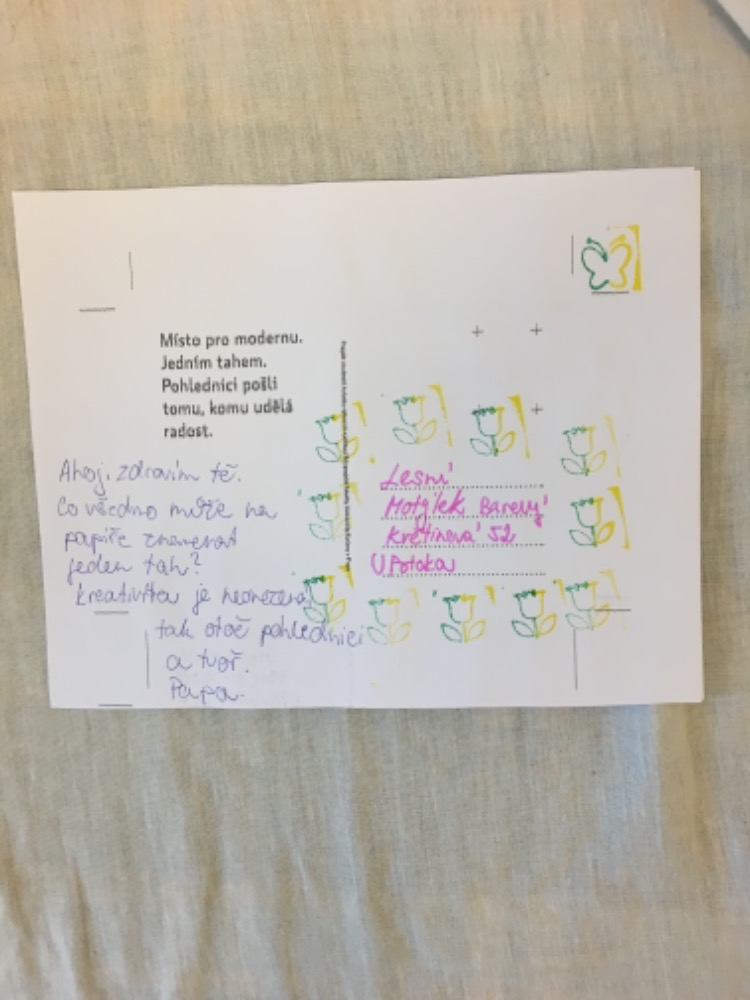 Místo pro modernu.
Jedním tahem.
Pohlednici pošli
tomu, komu udělá
radost.
Ahoj, zdravím tě.
Co všedno může na
papíře znamenat
jeden tah?
Kreativita je neomezená
tak otoč pohlednici
a tvoř.
Papa.
Lesní
Motýlek Barevný
Květinová 52
U Potoka